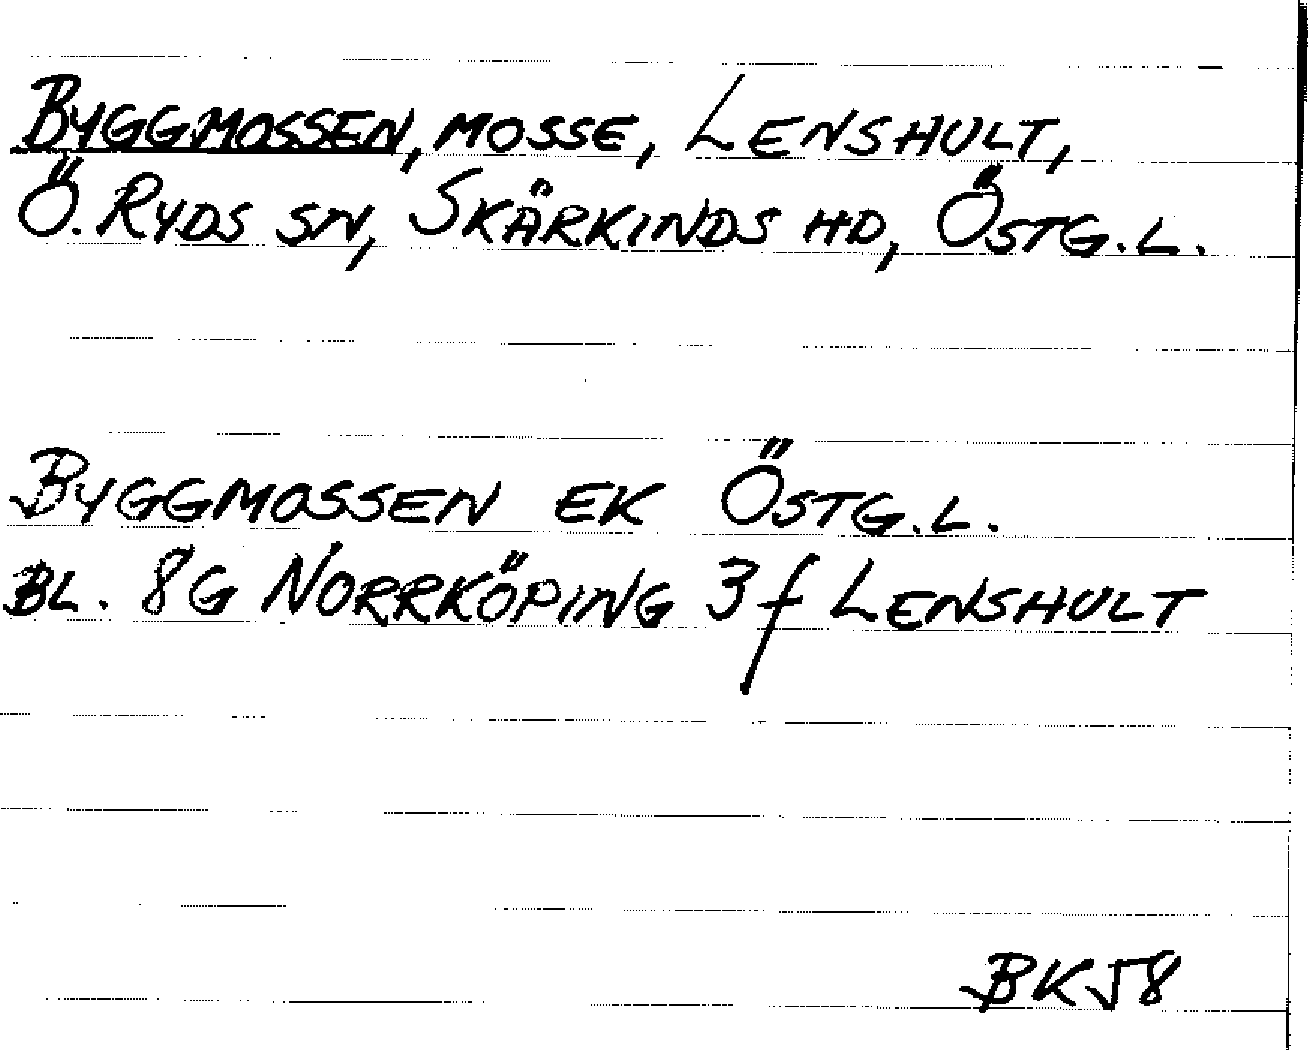 BYGGMOSSEN, MOSSE, LENSHULT,
Ö. RYDS SN, SKÄRKINDS HD, ÖSTG.L.
BYGGMOSSEN EK ÖSTG.L.
BL. 8G NORRKÖPING 3f LENSHULT
BK58